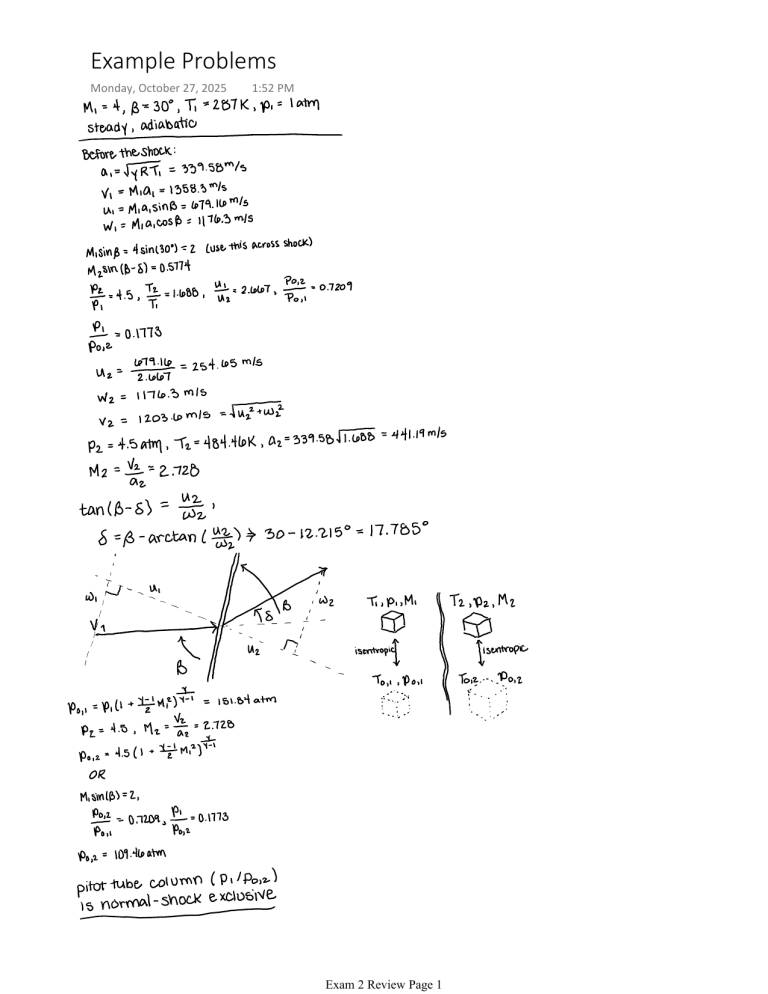 Example Problems
Monday, October 27, 2025 1:52 PM
M₁ = 4, β = 30°, T₁ = 287K, p₁ = 1 atm
steady, adiabatic
Before the shock:
a₁ = √γRT₁ = 339.58 m/s
V₁ = M₁a₁ = 1358.3 m/s
u₁ = M₁a₁sinβ = 679.16 m/s
w₁ = M₁a₁cosβ = 1176.3 m/s
M₁sinβ = 4sin(30°) = 2 (use this across shock)
M₂sin(β-δ) = 0.5774
p₂/p₁ = 4.5, T₂/T₁ = 1.688, u₁/u₂ = 2.667, p₀,₂/p₀,₁ = 0.7209
p₁/p₀,₂ = 0.1773
u₂ = 679.16/2.667 = 254.65 m/s
w₂ = 1176.3 m/s
V₂ = 1203.6 m/s = √u₂² + w₂²
p₂ = 4.5 atm, T₂ = 484.46K, a₂ = 339.58√1.688 = 441.19 m/s
M₂ = V₂/a₂ = 2.728
tan(β-δ) = u₂/w₂,
δ = β - arctan(u₂/w₂) → 30 - 12.215° = 17.785°
w₁
u₁
V₁
β
δ
β
w₂
u₂
T₁, p₁, M₁
T₂, p₂, M₂
isentropic
isentropic
T₀,₁, p₀,₁
T₀,₂, p₀,₂
p₀,₁ = p₁(1 + γ-1/2 M₁²)^γ/γ-1 = 151.84 atm
p₂ = 4.5, M₂ = V₂/a₂ = 2.728
p₀,₂ = 4.5(1 + γ-1/2 M₁²)^γ/γ-1
OR
M₁sin(β) = 2,
p₀,₂/p₀,₁ = 0.7209, p₁/p₀,₂ = 0.1773
p₀,₂ = 109.46 atm
pitot tube column (p₁/p₀,₂)
is normal-shock exclusive
Exam 2 Review Page 1